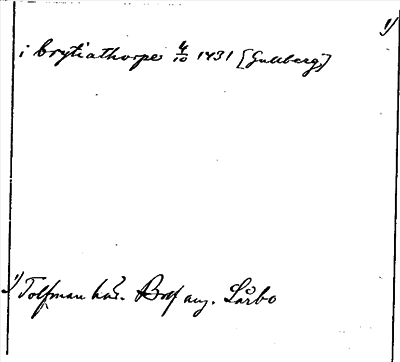 1)
i brytiathorpe 4/10 1431 [Gullberg]
1) Tolfman här. Bolf ang. Lårbo